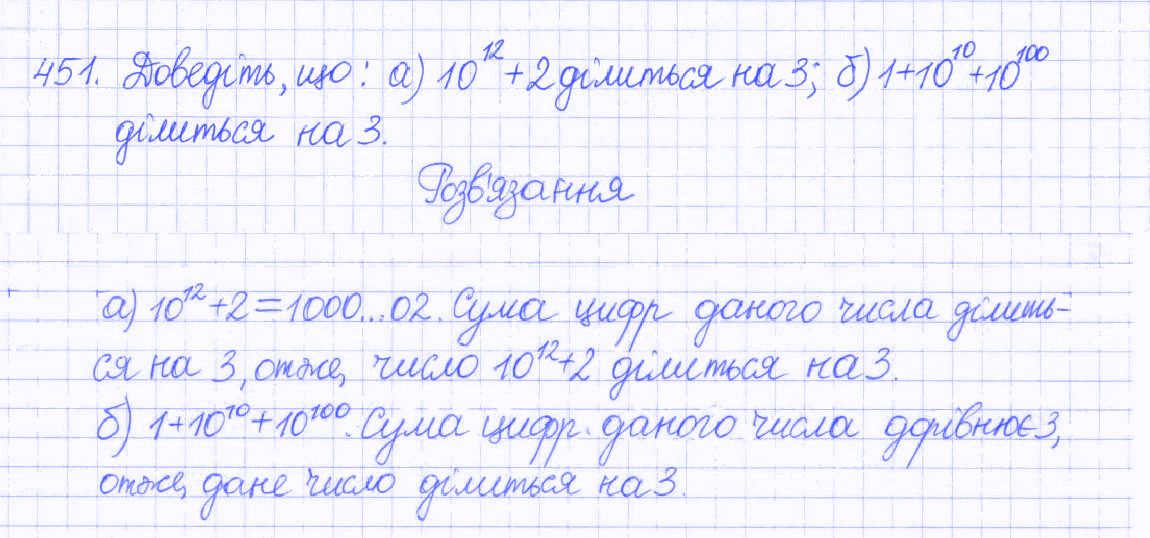 451. Доведіть, що: а) 10¹² + 2 ділиться на 3; б) 1 + 10¹⁰ + 10¹⁰⁰
ділиться на 3.
Розв'язання
а) 10¹² + 2 = 1000...02. Сума цифр даного числа ділить-
ся на 3, отже, число 10¹² + 2 ділиться на 3.
б) 1 + 10¹⁰ + 10¹⁰⁰. Сума цифр даного числа дорівнює 3,
отже, дане число ділиться на 3.